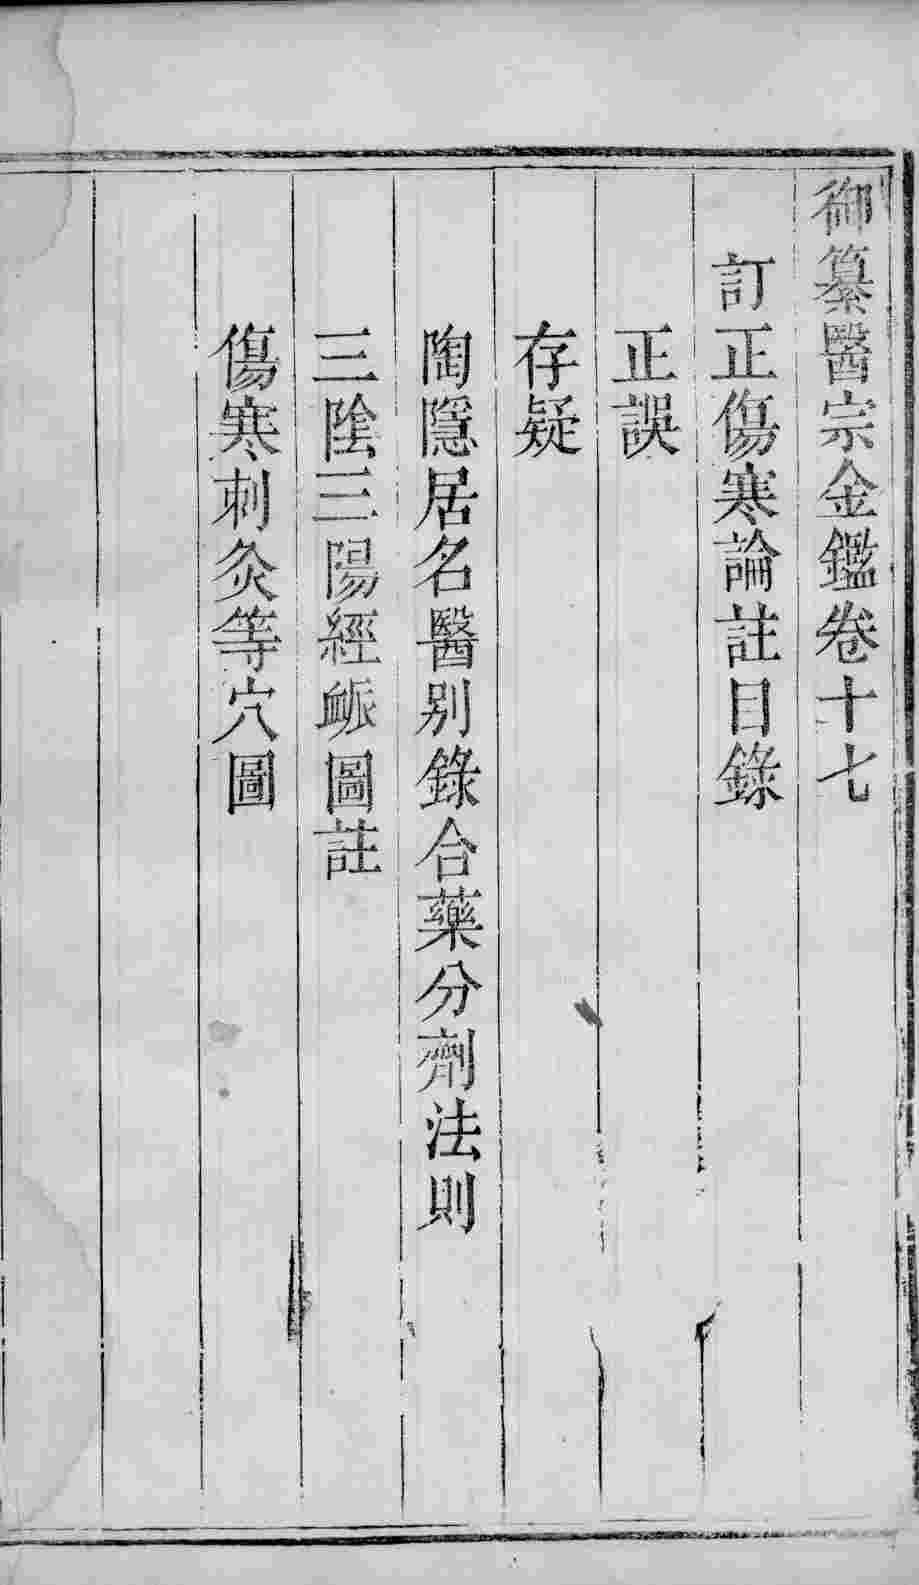 御纂醫宗金鑑卷十七
訂正傷寒論註目錄
正誤
存疑
陶隱居名醫別錄合藥分劑法則
三陰三陽經衇圖註
傷寒刺灸等穴圖